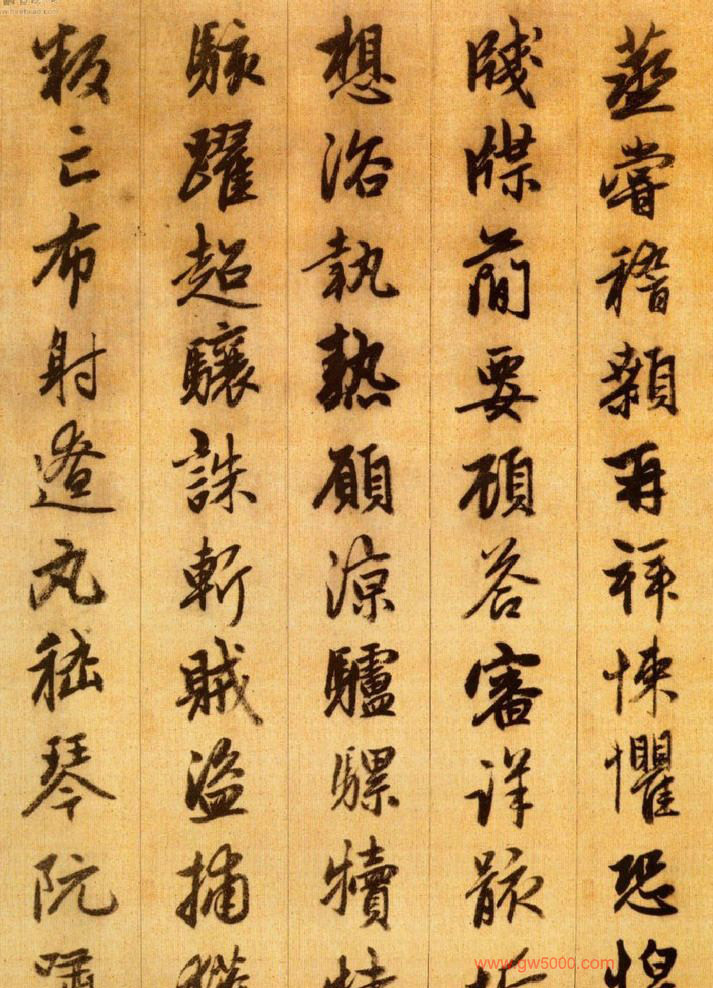 蒸嘗稽顙再拜悚懼恐惶
牋牒簡要顧答審詳骸垢
想浴執熱願涼驢騾犢特
駭躍超驤誅斬賊盜捕獲
叛亡布射遼丸嵇琴阮嘯
www.gw5000.com